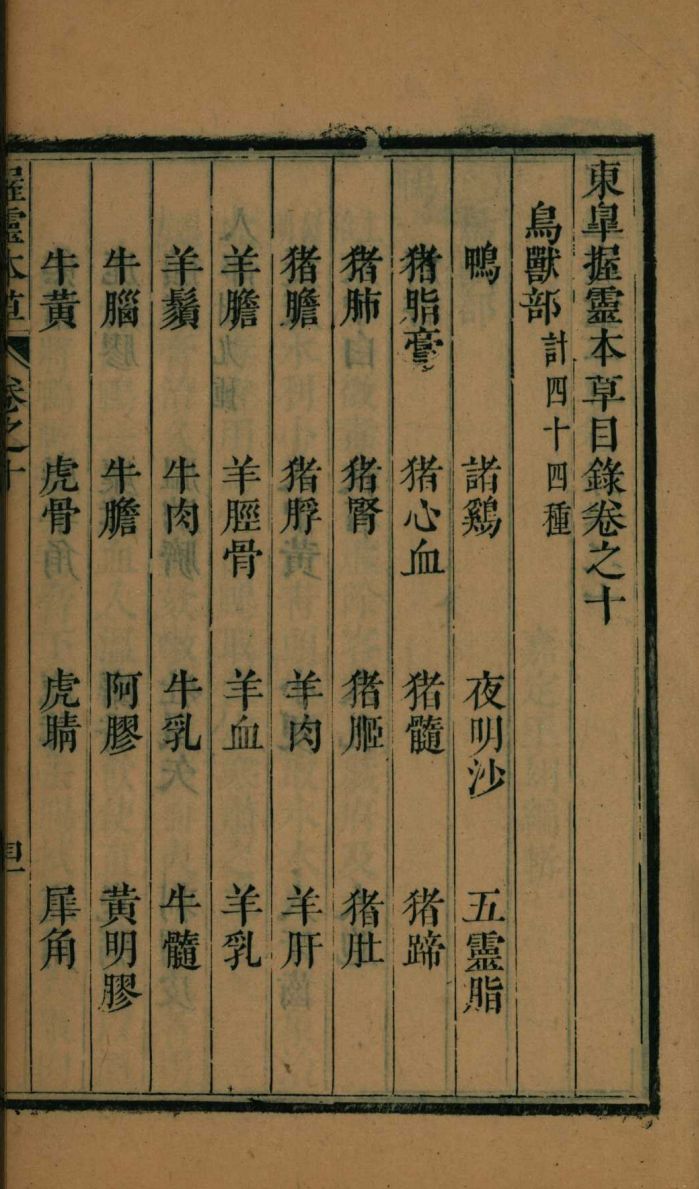 東皐握靈本草目錄卷之十
鳥獸部 計四十四種
鴨 諸鷄 夜明沙 五靈脂
猪脂膏 猪心血 猪髓 猪蹄
猪肺 猪腎 猪胆 猪肚
猪膽 猪脬 羊肉 羊肝
羊膽 羊脛骨 羊血 羊乳
羊鬚 牛肉 牛乳 牛髓
牛腦 牛膽 阿膠 黃明膠
牛黃 虎骨 虎睛 犀角
握靈本草 卷之十